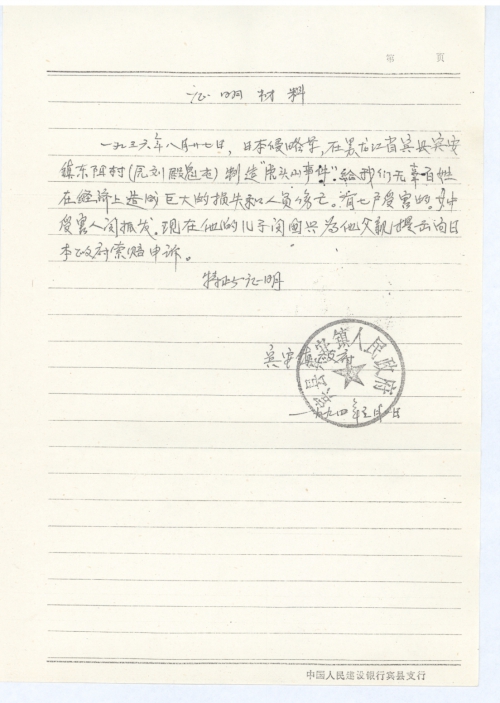 第 页
证明材料
一九三六年八月廿七日，日本侵略军，在黑龙江省宾县宾安
镇东阳村 制造 山事件"。给我们无辜百姓
在经济上造成巨大的损失和人员伤亡。有七户受害的。其中
受害人闫振戈。现在他的儿子闫国兴为他父亲 提出向日
本政府索赔申诉。
特此证明
宾安镇政府
宾县宾安镇人民政府
一九九四年 月一日
中国人民建设银行宾县支行